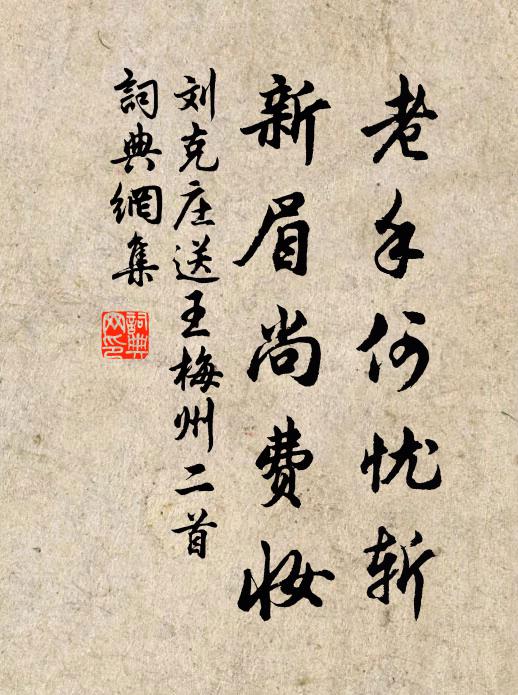 老手何忧斩
新眉尚费妆
刘克庄送王梅州二首
詞典網集
詞典
网印